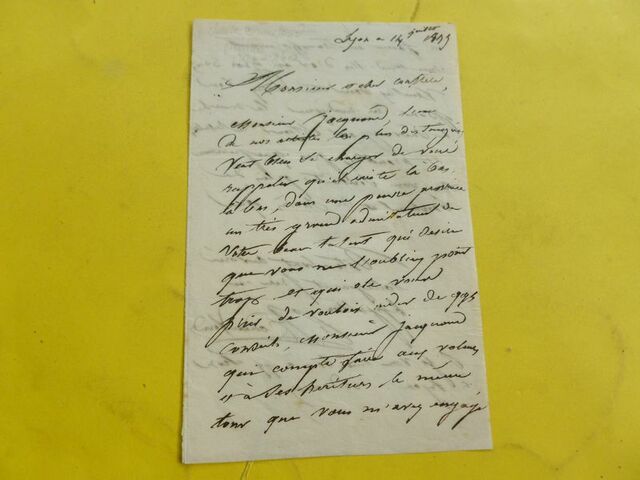 Lyon ce 14 juillet
Monsieur et cher confrère,
Monsieur Jacquand, l'un
de nos artistes les plus distingués
veut bien se charger de vous
rappeler qu'il existe là bas,
là bas, dans une pauvre province
un très grand admirateur de
votre beau talent qui desire
que vous ne l'oubliez point
trop et qui ose vous
de vouloir aider de
conseils, Monsieur Jacquand
qui compte faire aux
et à ses la même
tour que vous m'avez engagé